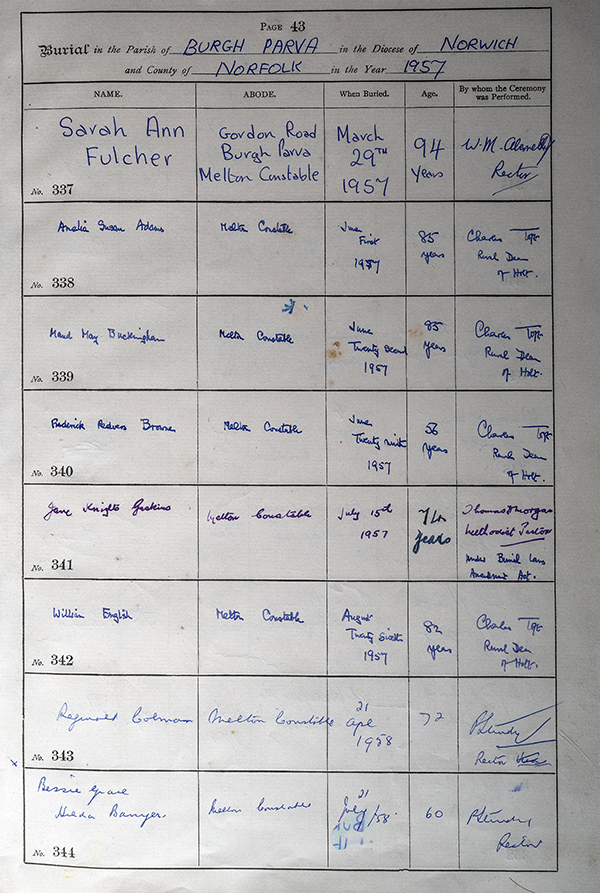 PAGE 43
Burial in the Parish of BURGH PARVA in the Diocese of NORWICH
and County of NORFOLK in the Year 1957
NAME. ABODE. When Buried. Age. By whom the Ceremony was Performed.
Sarah Ann
Fulcher
No. 337
Gordon Road
Burgh Parva
Melton Constable
March
29TH
1957
94
years
W. M.
Rector
Amelia Susan Adams
No. 338
Melton Constable
June
First
1957
85
years
Charles
Rural Dean
of Holt.
Maud May Buckingham
No. 339
Melton Constable
June
Twenty Second
1957
85
years
Charles
Rural Dean
of Holt.
Frederick Redvers Browne
No. 340
Melton Constable
June
Twenty ninth
1957
56
years
Charles
Rural Dean
of Holt.
Jane Knights Gaskins
No. 341
Melton Constable
July 15th
1957
74
years
Thomas Morgan
Methodist Pastor
under Burial Laws
Amendment Act.
William English
No. 342
Melton Constable
August
Twenty Sixth
1957
82
years
Charles
Rural Dean
of Holt.
Reginald Colman
No. 343
Melton Constable
21
Apl
1958
72
Rector
x
Bessie Grace
Hilda Banyer
No. 344
Melton Constable
21
July/58
60
Rector